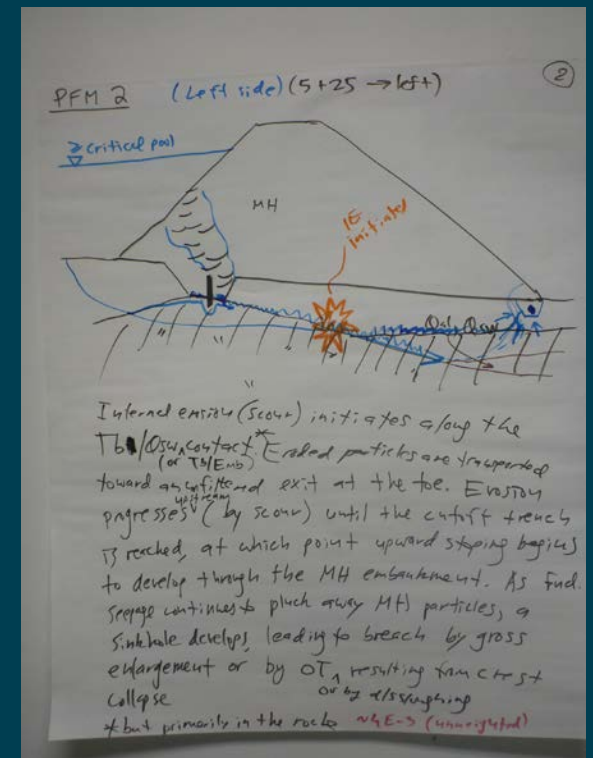 PFM 2 (Left side) (5+25 → left)
2
≥ critical pool
MH
IE initiates
Qal, Qsw
Internal erosion (scour) initiates along the
Tb/Qsw contact.* Eroded particles are transported
(or Tb/Emb)
toward an unfiltered exit at the toe. Erosion
progresses upstream (by scour) until the cutoff trench
is reached, at which point upward stoping begins
to develop through the MH embankment. As fnd.
seepage continues to pluck away MH particles, a
sinkhole develops, leading to breach by gross
enlargement or by OT resulting from crest
collapse or by d/s sloughing
* but primarily in the rock ~4E-3 (unweighted)